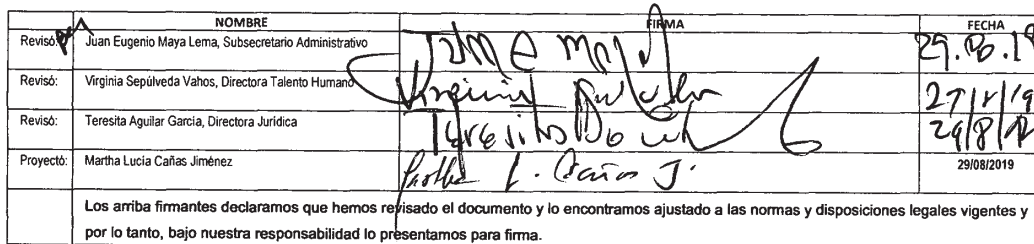 NOMBRE FIRMA FECHA
Revisó: Juan Eugenio Maya Lema, Subsecretario Administrativo
Revisó: Virginia Sepúlveda Vahos, Directora Talento Humano Virginia
Revisó: Teresita Aguilar García, Directora Jurídica Teresita
Proyectó: Martha Lucía Cañas Jiménez L. Cañas J. 29/08/2019
Los arriba firmantes declaramos que hemos revisado el documento y lo encontramos ajustado a las normas y disposiciones legales vigentes y
por lo tanto, bajo nuestra responsabilidad lo presentamos para firma.